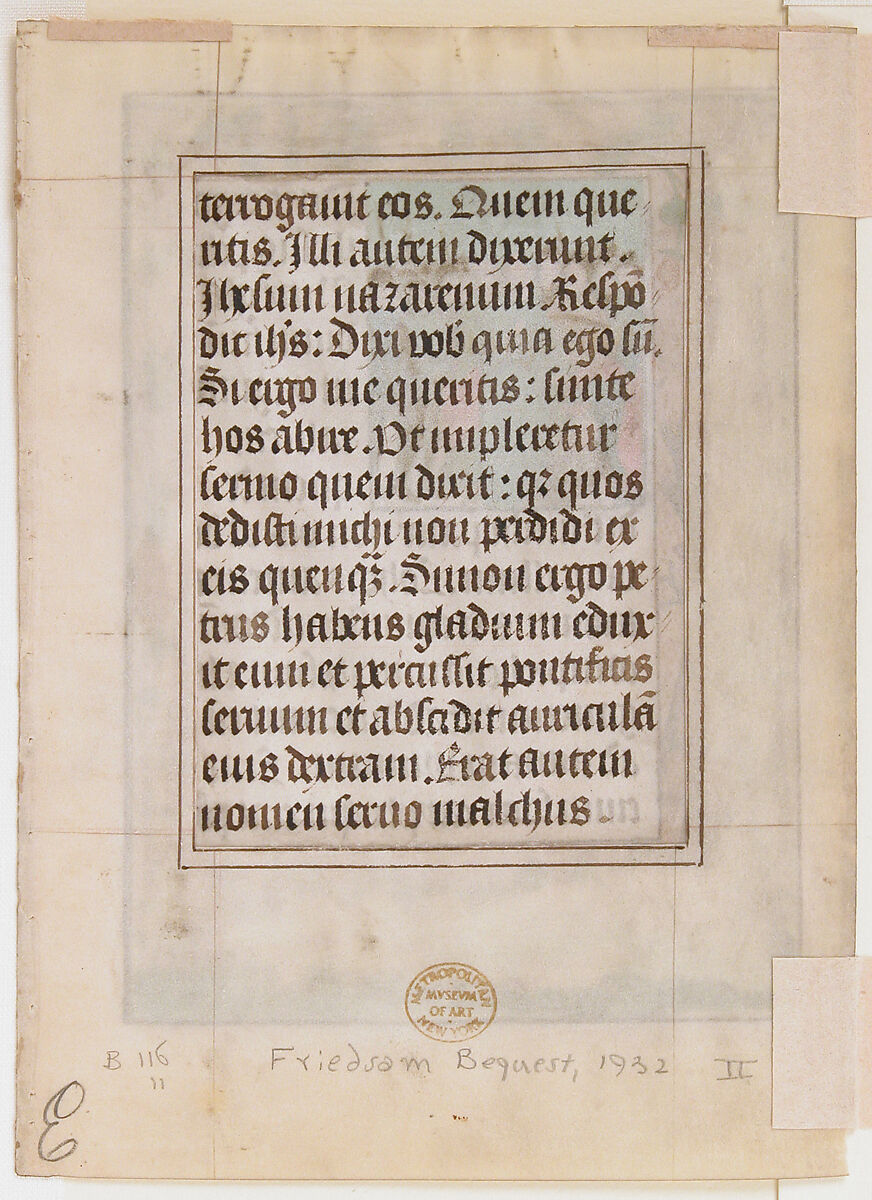 terrogauit eos. Quem que
ritis. Illi autem dixerunt.
Ihesum nazarenum. Respō
dit ih's: Dixi vob' quia ego sū.
Si ergo me queritis: sinite
hos abire. Vt impleretur
sermo quem dixit: qꝛ quos
dedisti michi non perdidi ex
eis quenqꝫ. Simon ergo pe
trus habens gladium edux
it eum et percussit pontificis
seruum et abscidit auriculā
eius dextram. Erat autem
nomen seruo malchus.
METROPOLITAN
MVSEVM
OF ART
NEW YORK
B 116
11
Friedsam Bequest, 1932 II
E